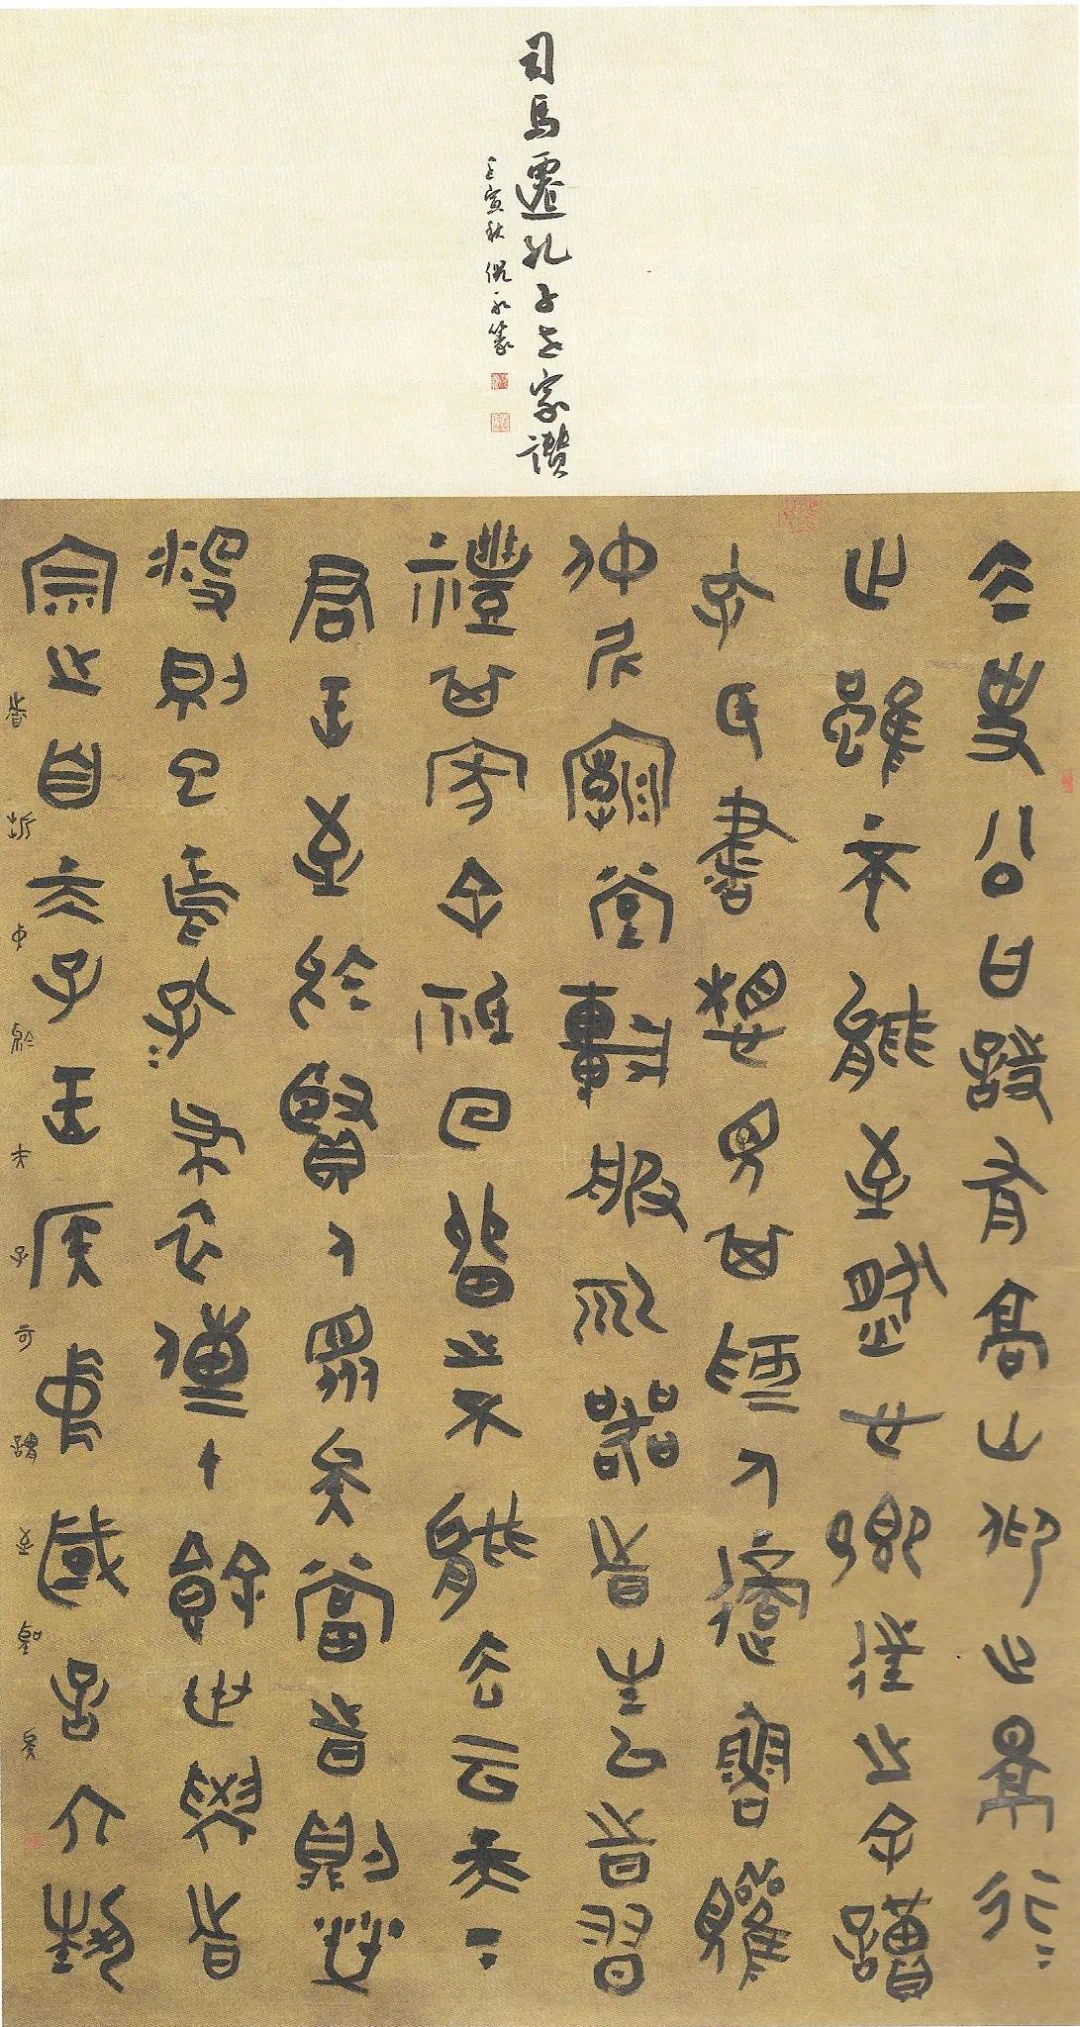 司馬遷孔子世家讚
壬寅秋
太史公曰詩有高山仰止景行=
止雖不能至然心鄉往之余讀
孔氏書想見其為人適魯觀
仲尼廟堂車服礼器者生以時習
禮其家余回留之不能去云天=
君王至於賢人眾矣當時則榮
歿則已焉孔=布衣傳十餘世學者
宗之自天子王侯中國言六藝
者折中於夫子可謂至聖矣